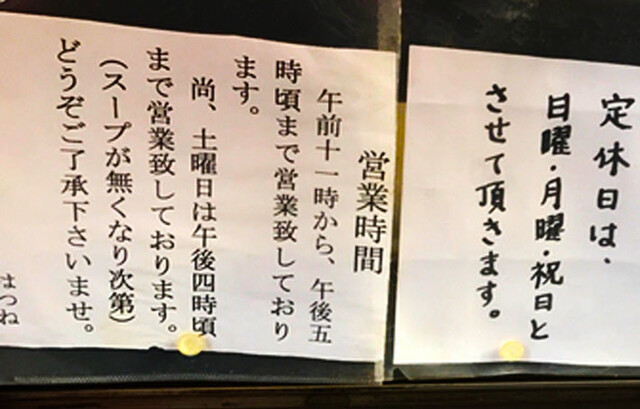 定休日は、
日曜・月曜・祝日と
させて頂きます。
営業時間
午前十一時から、午後五
時頃まで営業致しており
ます。
尚、土曜日は午後四時頃
まで営業致しております。
（スープが無くなり次第）
どうぞご了承下さいませ。
はつね